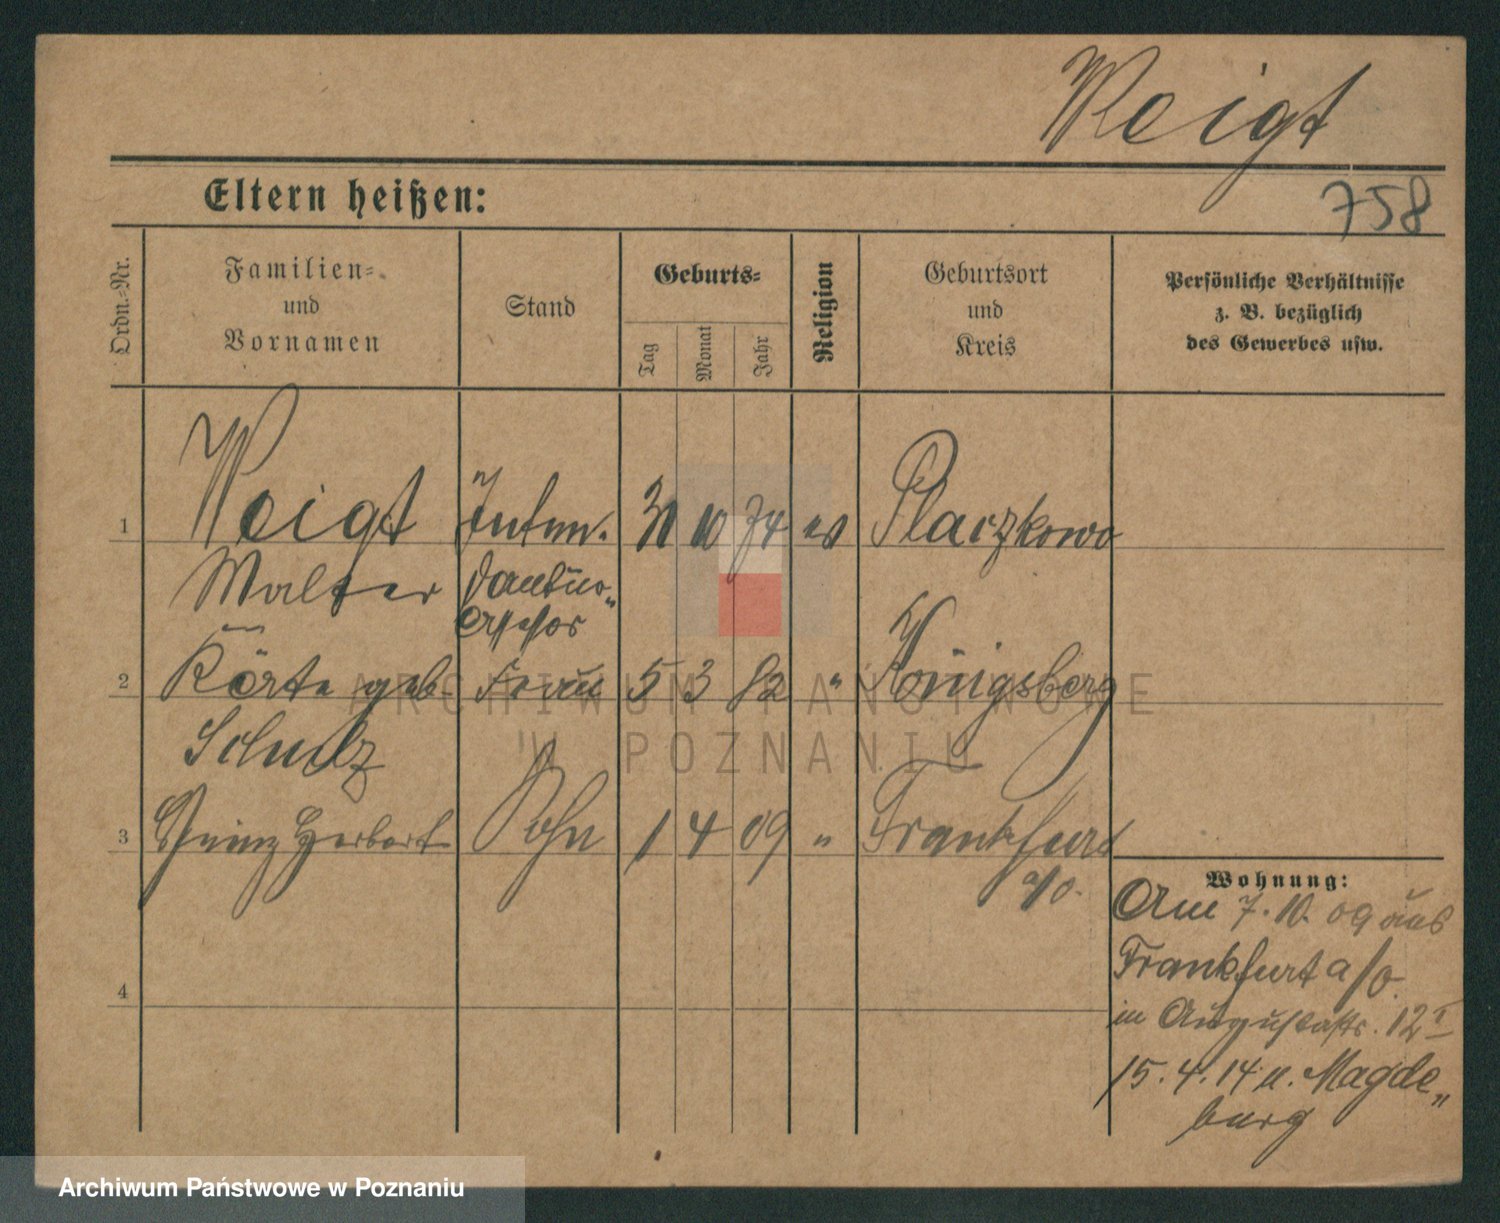 Weigt
Eltern heißen:
758
Ordn.-Nr.
Familien-
und
Vornamen
Stand
Geburts-
Tag
Monat
Jahr
Religion
Geburtsort
und
Kreis
Persönliche Verhältnisse
z. B. bezüglich
des Gewerbes usw.
1 Weigt Inten- 31 10 74 ev Placzkowo
Walter dantur-
assessor
2 geb Frau 5 3 82 " Königsberg
Schulz
3 Heinz Herbert Sohn 1 4 09 " Frankfurt
a/O.
4
Wohnung:
Am 7. 10. 09 aus
Frankfurt a/O.
in Augustastr. 12 I
15. 4. 14 n. Magde„
burg
ARCHIWUM PAŃSTWOWE
W POZNANIU
Archiwum Państwowe w Poznaniu